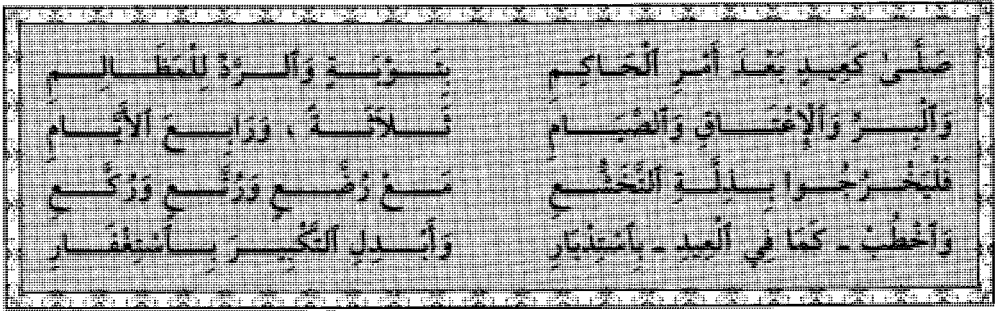 صَلَّىٰ كَعِيدٍ بَعْدَ أَمْرِ ٱلْحَاكِمِ بِتَوْبَةٍ وَٱلرَّدِّ لِلْمَظَالِمِ
وَٱلْبِرِّ وَٱلْإِعْتَاقِ وَٱلصِّيَامِ ثَلَاثَةً ، وَرَابِعَ ٱلْأَيَّامِ
فَلْيَخْرُجُوا بِبِذْلَةِ ٱلتَّخَشُّعِ مَعْ رُضَّعٍ وَرُتَّعٍ وَرُكَّعِ
وَٱخْطُبْ - كَمَا فِي ٱلْعِيدِ - بِٱسْتِدْبَارِ وَأَبْدِلِ ٱلتَّكْبِيرَ بِٱسْتِغْفَارِ